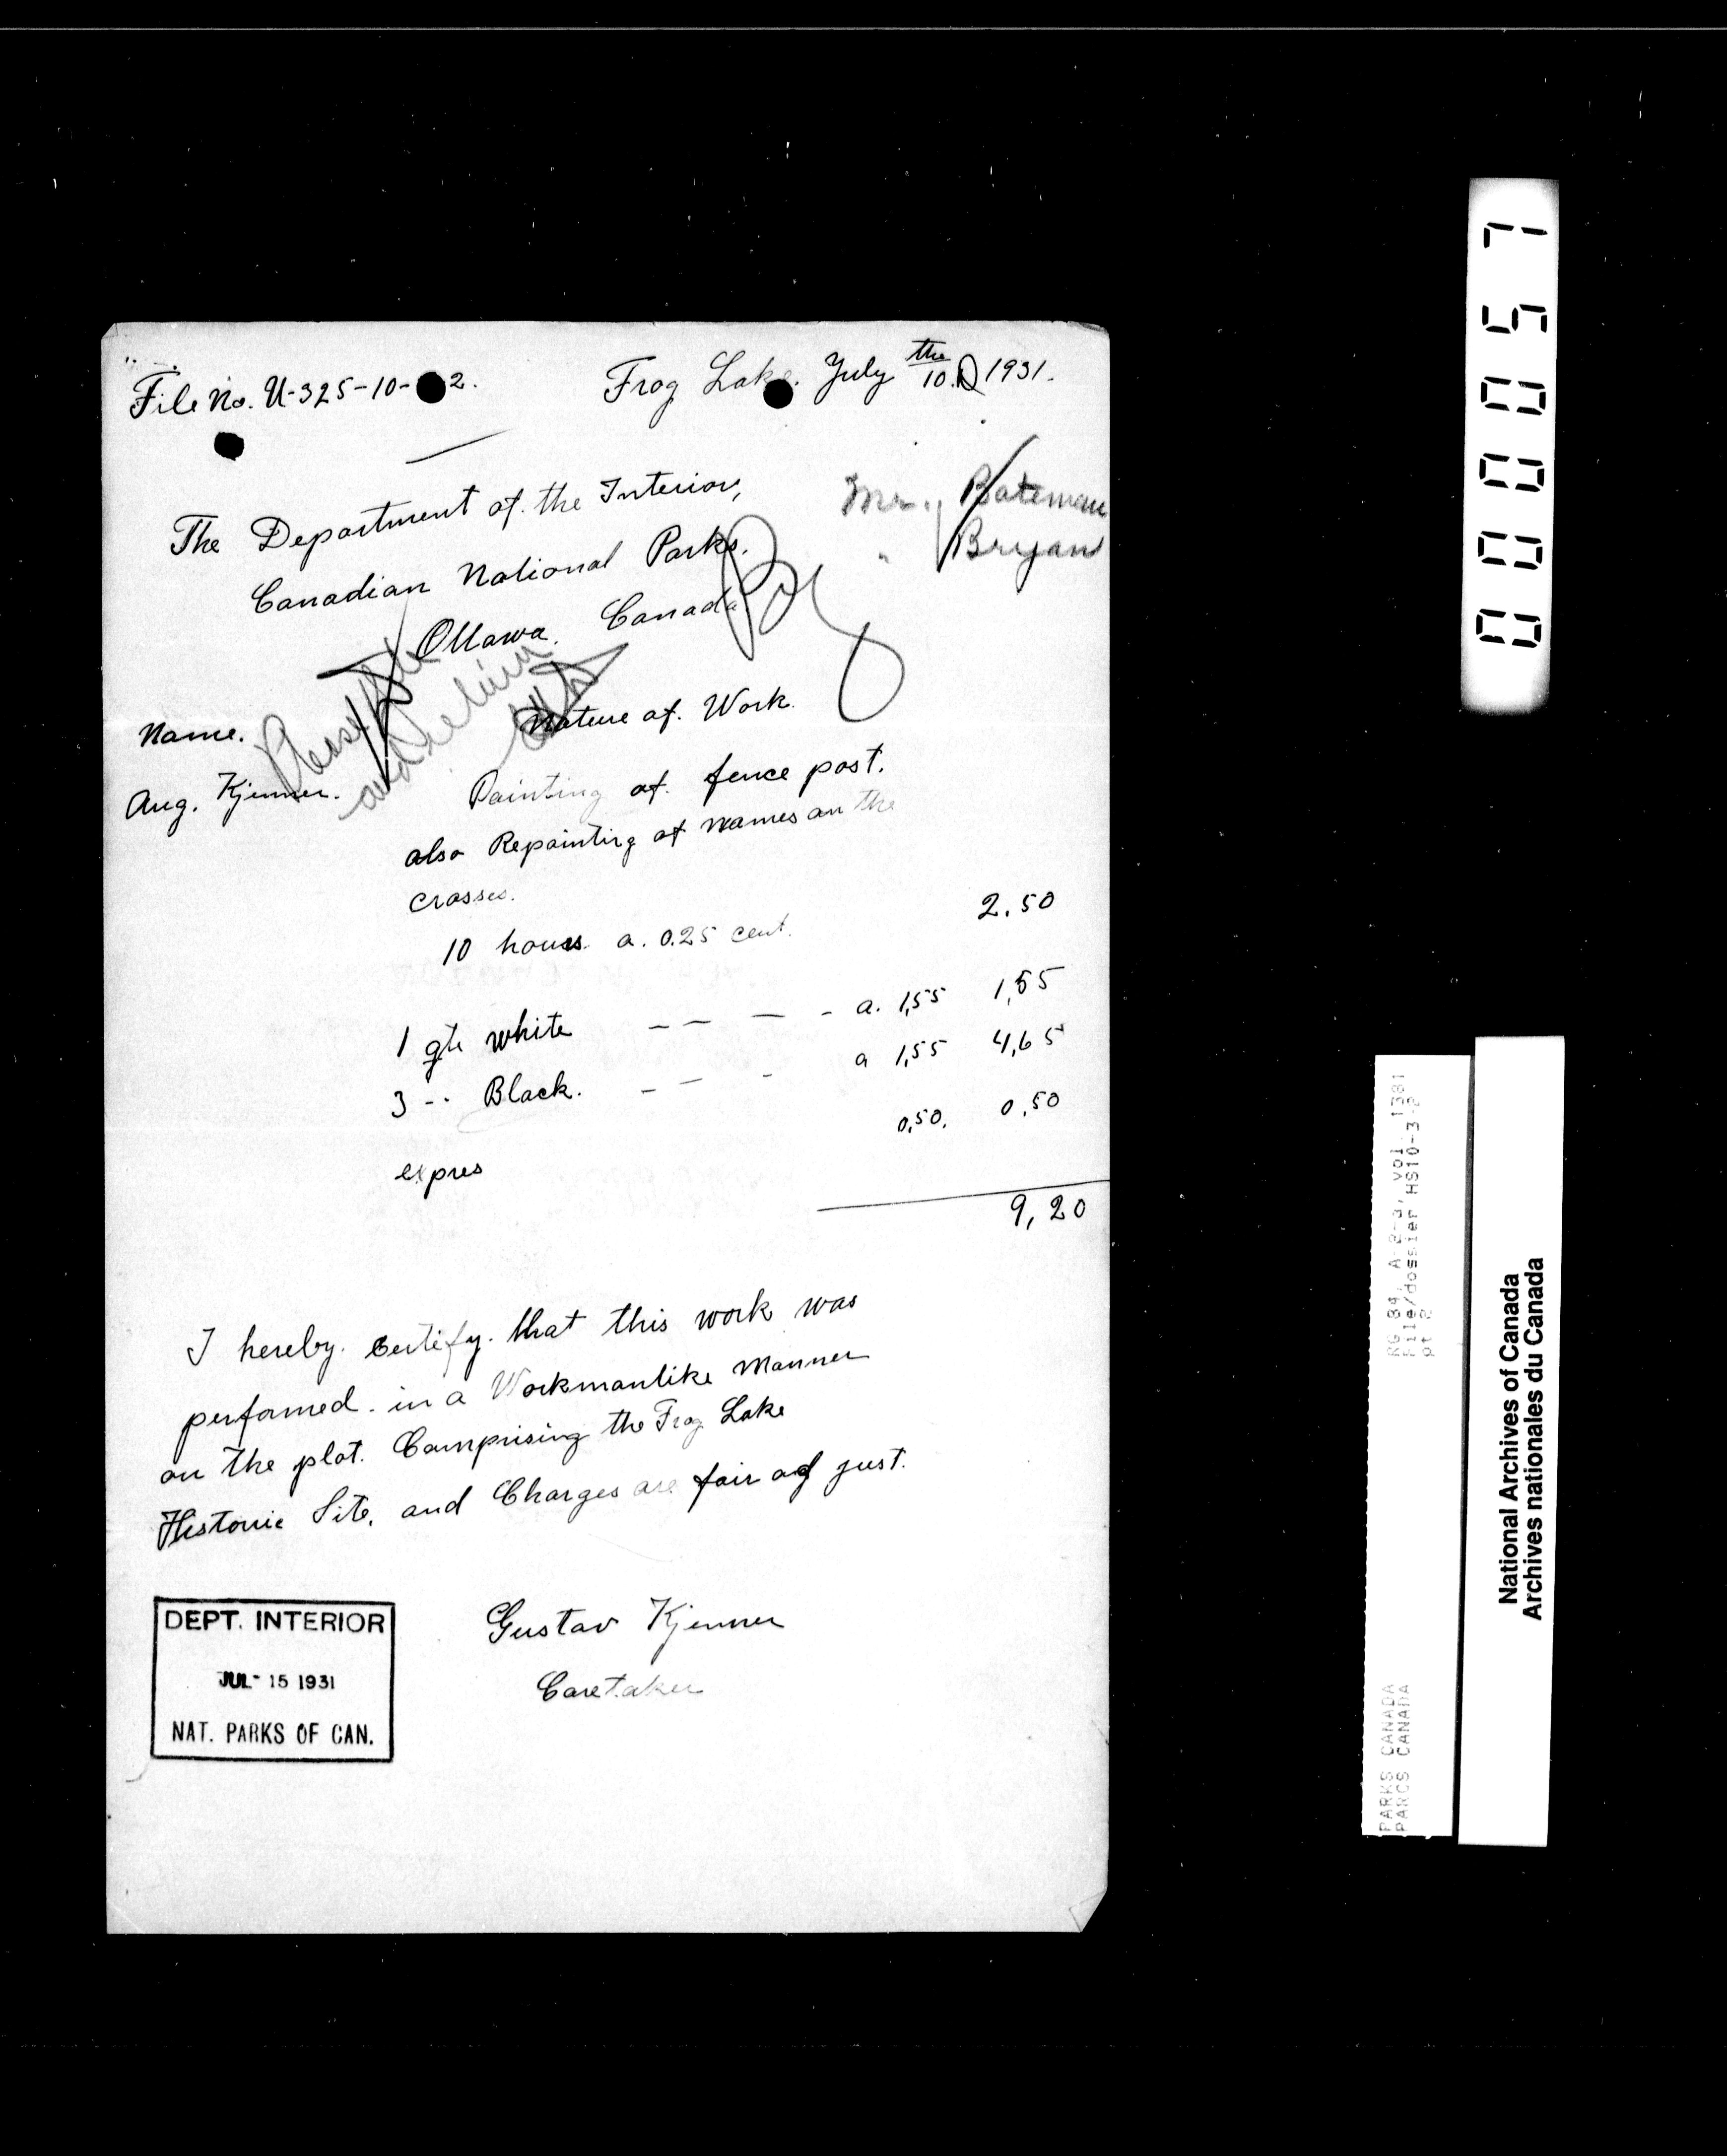 File No. U-325-10- 2.
Frog Lake. July 10.the 1931.
Mr. Bateman
" Bryan
The Department of. the Interior,
Canadian National Parks.
Ottawa. Canada
Please
and return
Name.
Nature of. Work.
Aug. Kjenner.
Painting of. fence post.
also Repainting of names on the
crosses.
10 hours. a. 0.25 cent. 2.50
1 gls white — — — - a. 1,55 1,55
3 -- Black. - — - a 1,55 4,65
expres 0,50. 0,50
9,20
I hereby. certify. that this work was
performed. in a Workmanlike Manner
on the plot. Comprising the Frog Lake
Historic Site, and Charges are fair ad just.
Gustav Kjenner
Caretaker
DEPT. INTERIOR
JUL- 15 1931
NAT. PARKS OF CAN.
000057
RG 84, A-2-a, vol. 1381
File/dossier HS10-3-2
pt 2
PARKS CANADA
PARCS CANADA
National Archives of Canada
Archives nationales du Canada